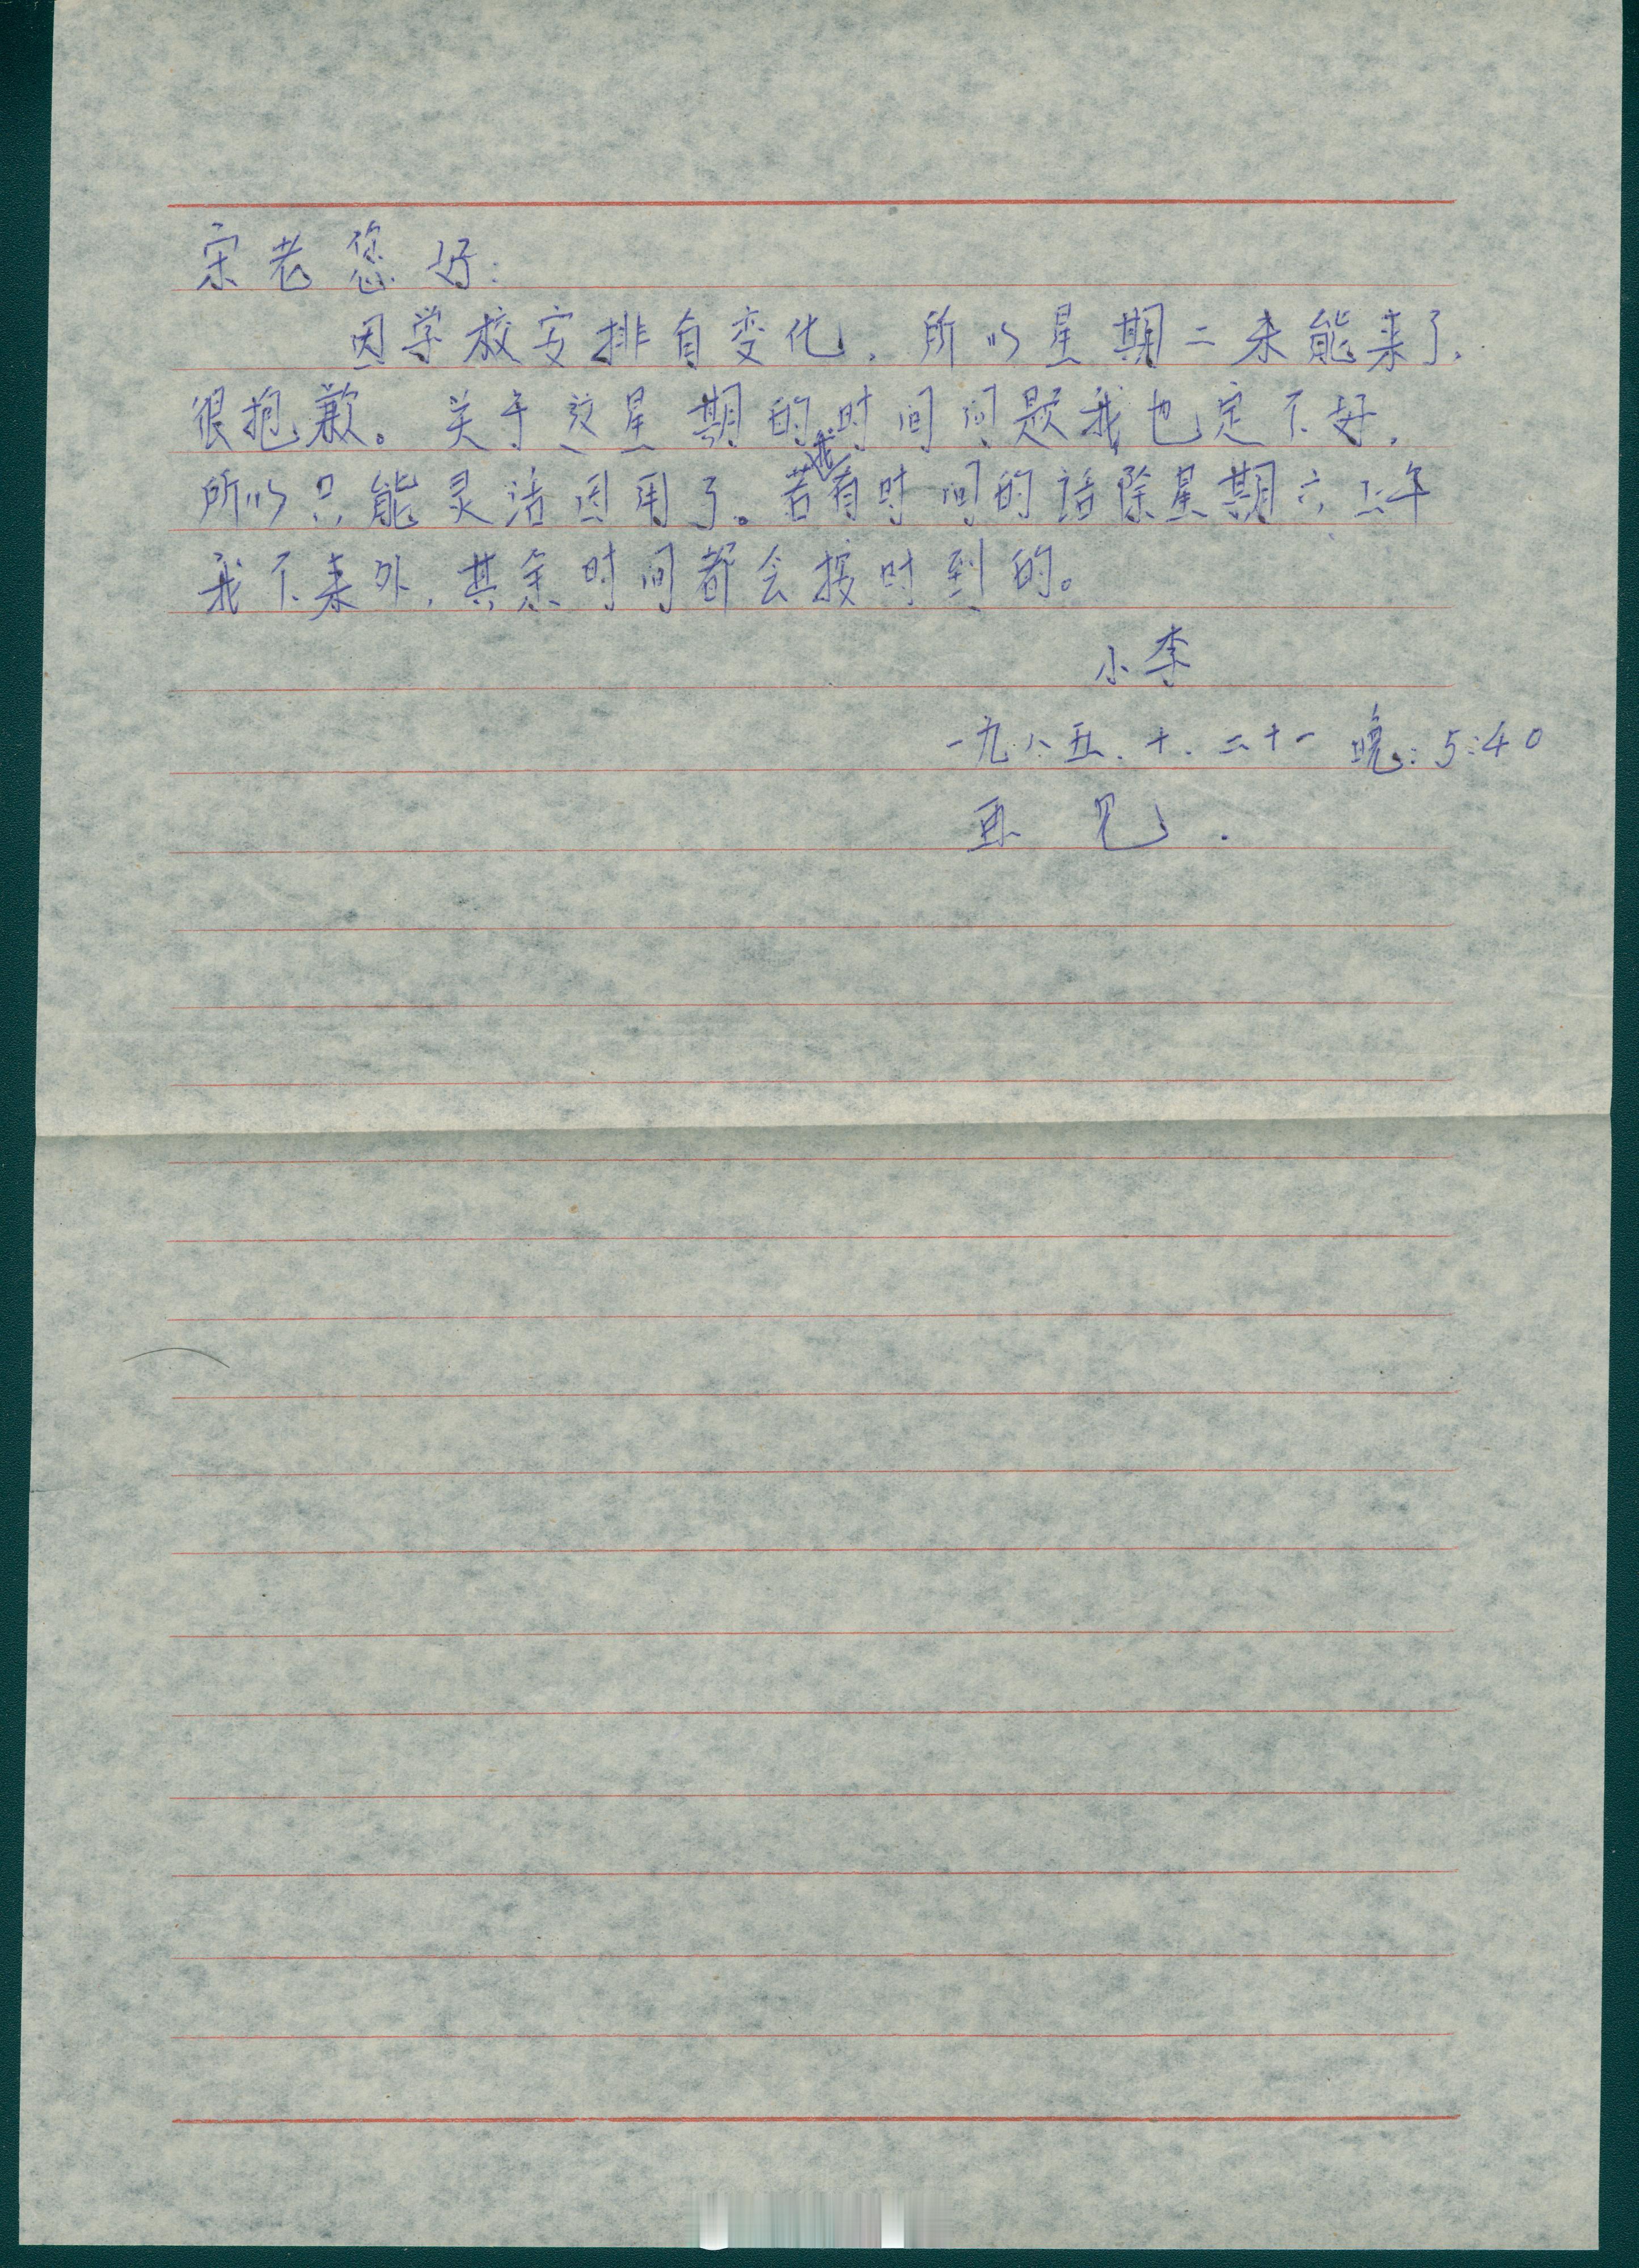 宋老您好:
因学校安排有变化，所以星期二未能来了，
很抱歉。关于这星期的时间问题我也定不好，
所以只能灵活因用了。若我有时间的话除星期六上午
我不来外，其余时间都会按时到的。
小李
一九八五.十.二十一 晚:5:40
再见.